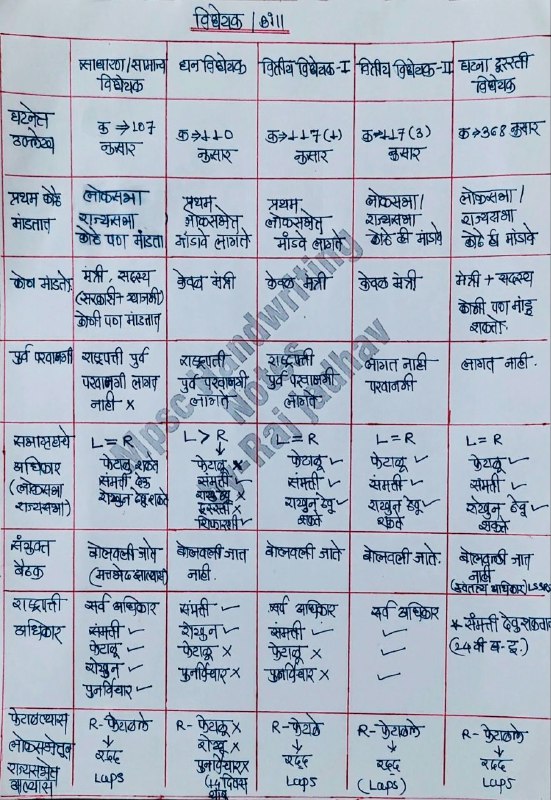 विधेयक / Bill
साधारण/सामान्य
विधेयक
धन विधेयक
वित्तीय विधेयक-I
वित्तीय विधेयक-II
घटना दुरुस्ती
विधेयक
घटनेत
उल्लेख
क ⇒ 107
नुसार
क ⇒ 110
नुसार
क ⇒ 117(1)
नुसार
क ⇒ 117(3)
नुसार
क ⇒ 368 नुसार
प्रथम कोठे
मांडतात
लोकसभा
राज्यसभा
कोठे पण मांडता
प्रथम
लोकसभेत
मांडावे लागते
प्रथम
लोकसभेत
मांडवे लागते
लोकसभा/
राज्यसभा
कोठे ही मांडावे
लोकसभा/
राज्यसभा
कोठे ही मांडावे
कोण मांडते.
मंत्री, सदस्य
(सरकारी+खाजगी)
कोणी पण मांडतात
केवळ मंत्री
केवळ मंत्री
केवळ मंत्री
मंत्री + सदस्य
कोणी पण मांडू
शकतो.
पुर्व परवानगी
राष्ट्रपती पुर्व
परवानगी लागत
नाही ×
राष्ट्रपती
पुर्व परवानगी
लागते
राष्ट्रपती
पुर्व परवानगी
लागते
लागत नाही
परवानगी
लागत नाही.
सभागृहाचे
अधिकार
(लोकसभा
राज्यसभा)
L = R
फेटाळू शकते
संमती देऊ
राखुन ठेवू शकते
L > R
↓
फेटाळू ×
संमती ✓
राखु ठेवू ×
दुरुस्ती ×
शिफारशी ✓
L = R
फेटाळू ✓
संमती ✓
राखुन ठेवू ✓
शकते
L = R
फेटाळू ✓
संमती ✓
राखुन ठेवू ✓
शकते
L = R
फेटाळू ✓
संमती ✓
राखुन ठेवू ✓
शकते
संयुक्त
बैठक
बोलवली जाते
(मतभेद झाल्यास)
बोलवली जात
नाही.
बोलवली जाते
बोलवली जाते.
बोलवली जात
नाही
राष्ट्रपती
अधिकार
सर्व अधिकार
संमती ✓
फेटाळू ✓
राखुन ✓
पुनर्विचार ✓
संमती ✓
राखुन ✓
फेटाळू ×
पुनर्विचार ×
सर्व अधिकार
संमती ✓
फेटाळू ✓
पुनर्विचार ✓
सर्व अधिकार
✓
✓
✓
* संमती देवु शकतात
(24वी घ.दु.)
फेटाळल्यास
लोकसभेतून
राज्यसभेत
आल्यास
R- फेटाळले
↓
रद्द
Laps
R- फेटाळू ×
राखु ×
पुनर्विचार ×
(14 दिवस
R- फेटाळे
↓
रद्द
Laps
R- फेटाळले
↓
रद्द
(Laps)
R- फेटाळले
↓
रद्द
Laps
Mpsc Handwriting
Notes
-Raj Jadhav